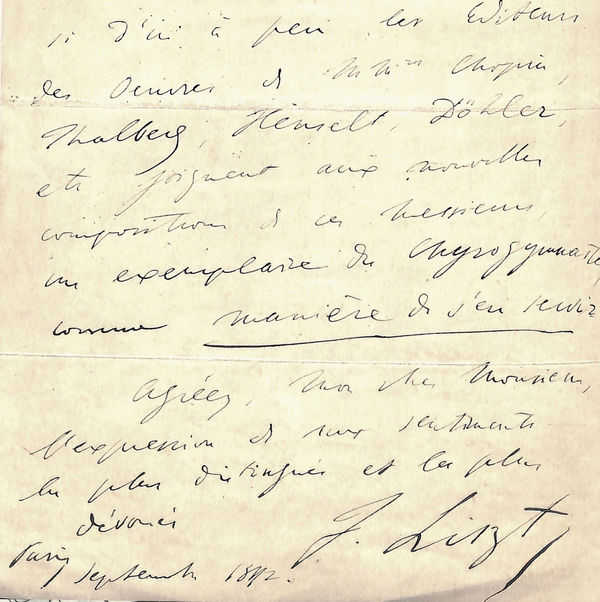 si d'ici à peu les Editeurs
des Oeuvres de M.M.rs Chopin,
Thalberg, Henselt, Döhler,
etc joignent aux nouvelles
compositions de ces Messieurs,
un exemplaire du Chyrogymnaste,
comme manière de s'en servir
Agréez, mon cher Monsieur,
l'expression de mes sentiments
les plus distingués et les plus
dévoués
F. Liszt
Paris
Septembre 1842.